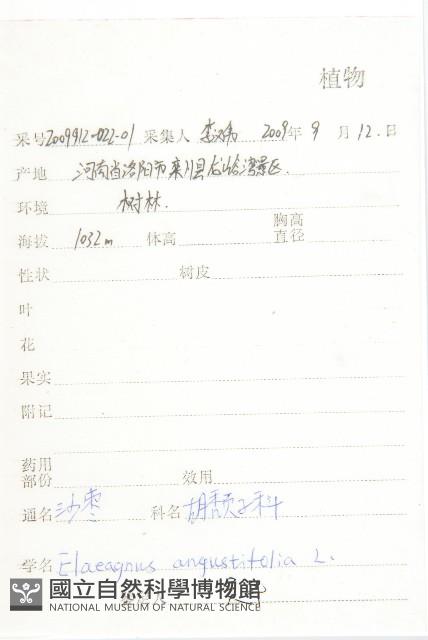 植物
采号 2009912-022-01 采集人 李 2009年 9 月 12. 日
产地 河南省洛阳市栾川县龙峪湾景区.
环境 树林.
海拔 1032m 体高 胸高直径
性状 树皮
叶
花
果实
附记
药用部份 效用
通名 沙枣 科名 胡颓子科
学名 Elaeagnus angustifolia L.
國立自然科學博物館
NATIONAL MUSEUM OF NATURAL SCIENCE